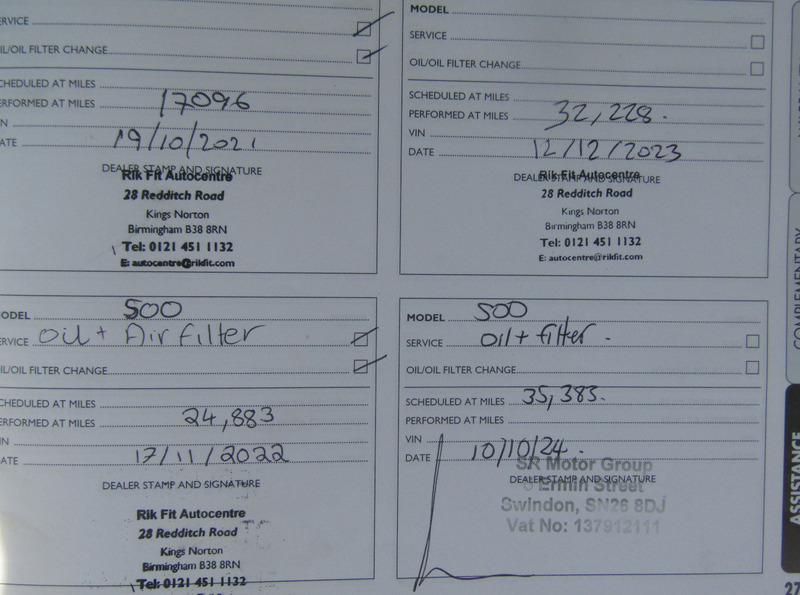 RVICE
IL/OIL FILTER CHANGE
CHEDULED AT MILES
ERFORMED AT MILES 17096
IN
ATE 19/10/2021
DEALER STAMP AND SIGNATURE
Rik Fit Autocentre
28 Redditch Road
Kings Norton
Birmingham B38 8RN
Tel: 0121 451 1132
E: autocentre@rikfit.com
MODEL
SERVICE
OIL/OIL FILTER CHANGE
SCHEDULED AT MILES
PERFORMED AT MILES 32,228.
VIN
DATE 12/12/2023
DEALER STAMP AND SIGNATURE
Rik Fit Autocentre
28 Redditch Road
Kings Norton
Birmingham B38 8RN
Tel: 0121 451 1132
E: autocentre@rikfit.com
ODEL 500
RVICE Oil + Air filter
IL/OIL FILTER CHANGE
CHEDULED AT MILES
ERFORMED AT MILES 24,883
IN
ATE 17/11/2022
DEALER STAMP AND SIGNATURE
Rik Fit Autocentre
28 Redditch Road
Kings Norton
Birmingham B38 8RN
Tel: 0121 451 1132
MODEL 500
SERVICE Oil + filter.
OIL/OIL FILTER CHANGE
SCHEDULED AT MILES 35,383.
PERFORMED AT MILES
VIN
DATE 10/10/24.
DEALER STAMP AND SIGNATURE
SR Motor Group
Ermin Street
Swindon, SN26 8DJ
Vat No: 137912111
COMPLEMENTARY
ASSISTANCE
27